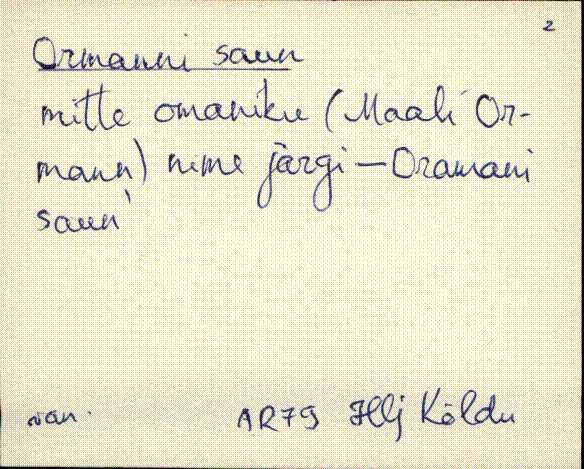 2
Ormanni saun
mitte omaniku (Maali Or-
mann) nime järgi – Oramani
saun'
van.
AR79 Hlj Kõldu